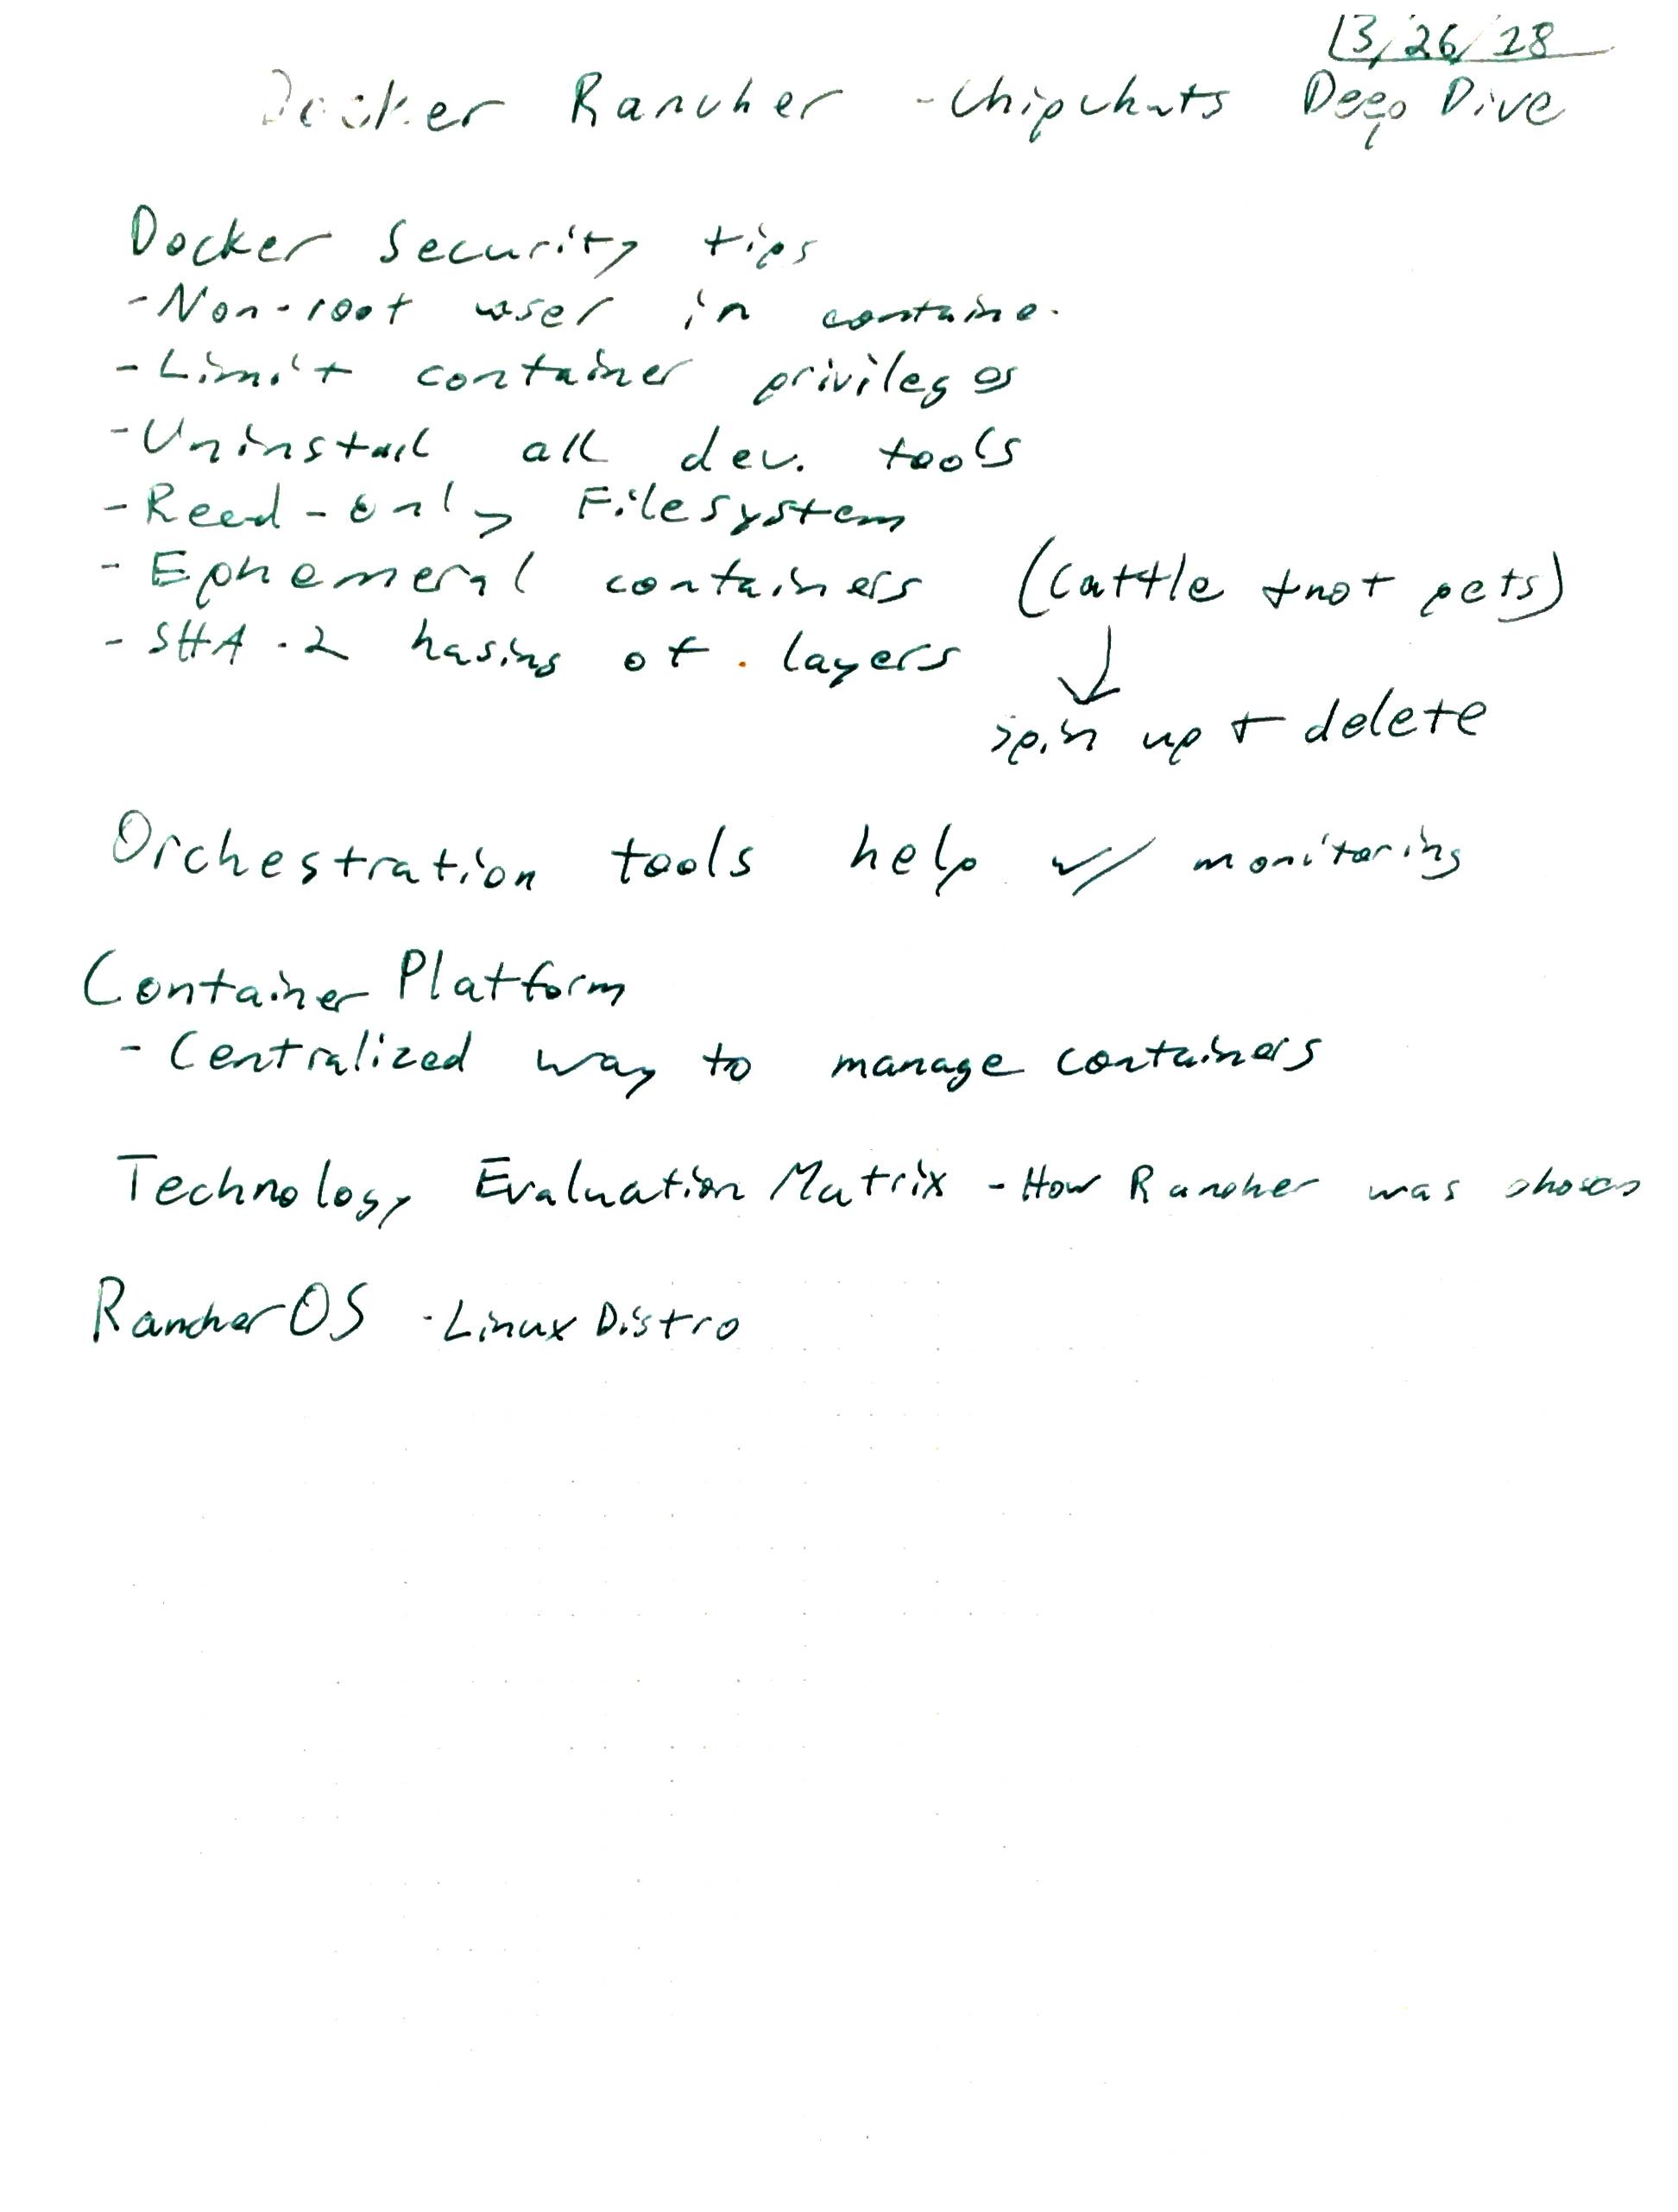 3/26/28
Docker Rancher - Chipchats Deep Dive
Docker Security tips
- Non-root user in containe.
- Limit container privileges
- Uninstall all dev. tools
- Read-only Filesystem
- Ephemeral containers (Cattle not pets)
- SHA-2 hasing of layers
spin up + delete
Orchestration tools help w/ monitoring
Container Platform
- Centralized way to manage containers
Technology Evaluation Matrix - How Rancher was chosen
RancherOS - Linux Distro